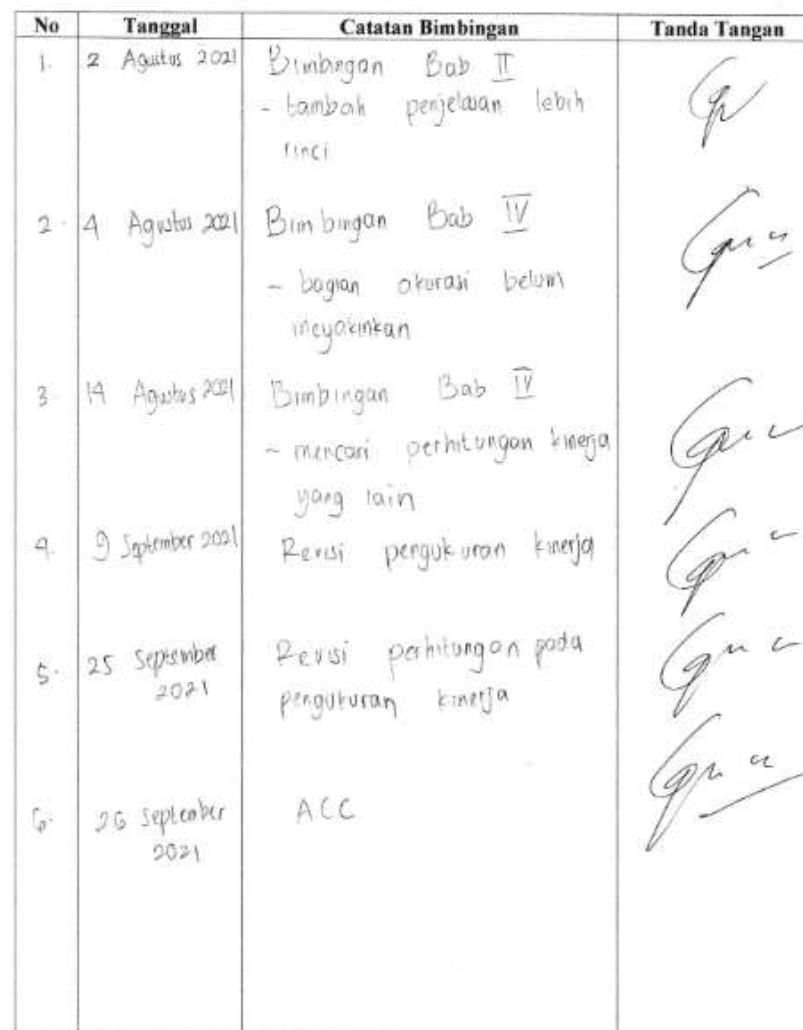 No Tanggal Catatan Bimbingan Tanda Tangan
1. 2 Agustus 2021 Bimbingan Bab II
- tambah penjelasan lebih
rinci
2. 4 Agustus 2021 Bimbingan Bab IV
- bagian akurasi belum
meyakinkan
3. 14 Agustus 2021 Bimbingan Bab IV
- mencari perhitungan kinerja
yang lain
4. 9 September 2021 Revisi pengukuran kinerja
5. 25 September Revisi perhitungan pada
2021 pengukuran kinerja
6. 26 September ACC
2021